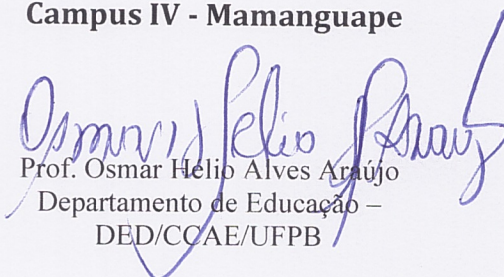 Campus IV - Mamanguape
Osmar Hélio Araújo
Prof. Osmar Hélio Alves Araújo
Departamento de Educação –
DED/CCAE/UFPB